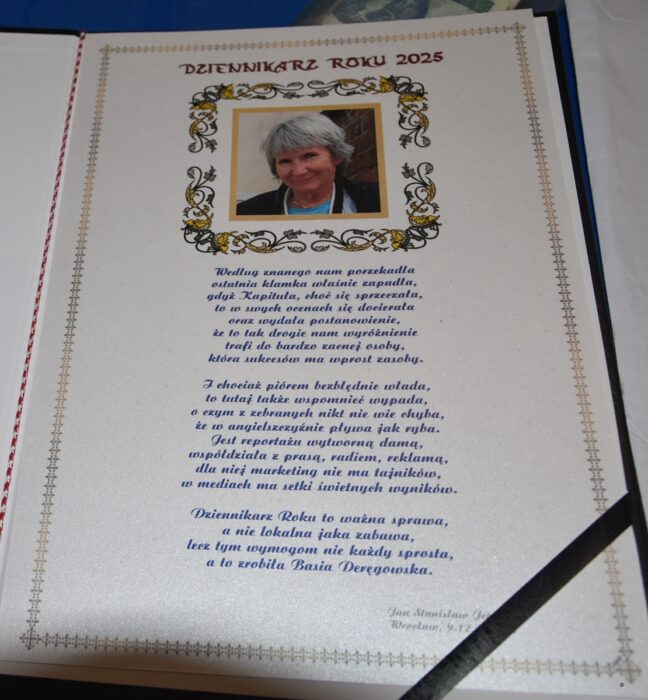 DZIENNIKARZ ROKU 2025
Według znanego nam porzekadła
ostatnia klamka właśnie zapadła,
gdyż Kapituła, choć się sprzeczała,
to w swych ocenach się docierała
oraz wydała postanowienie,
że to tak drogie nam wyróżnienie
trafi do bardzo zacnej osoby,
która sukcesów ma wprost zasoby.
I chociaż piórem bezbłędnie włada,
to tutaj także wspomnieć wypada,
o czym z zebranych nikt nie wie chyba,
że w angielszczyźnie pływa jak ryba.
Jest reportażu wytworną damą,
współdziała z prasą, radiem, reklamą,
dla niej marketing nie ma tajników,
w mediach ma setki świetnych wyników.
Dziennikarz Roku to ważna sprawa,
a nie lokalna jaka zabawa,
lecz tym wymogom nie każdy sprosta,
a to zrobiła Basia Deręgowska.
Jan Stanisław
Wrocław, 9.12